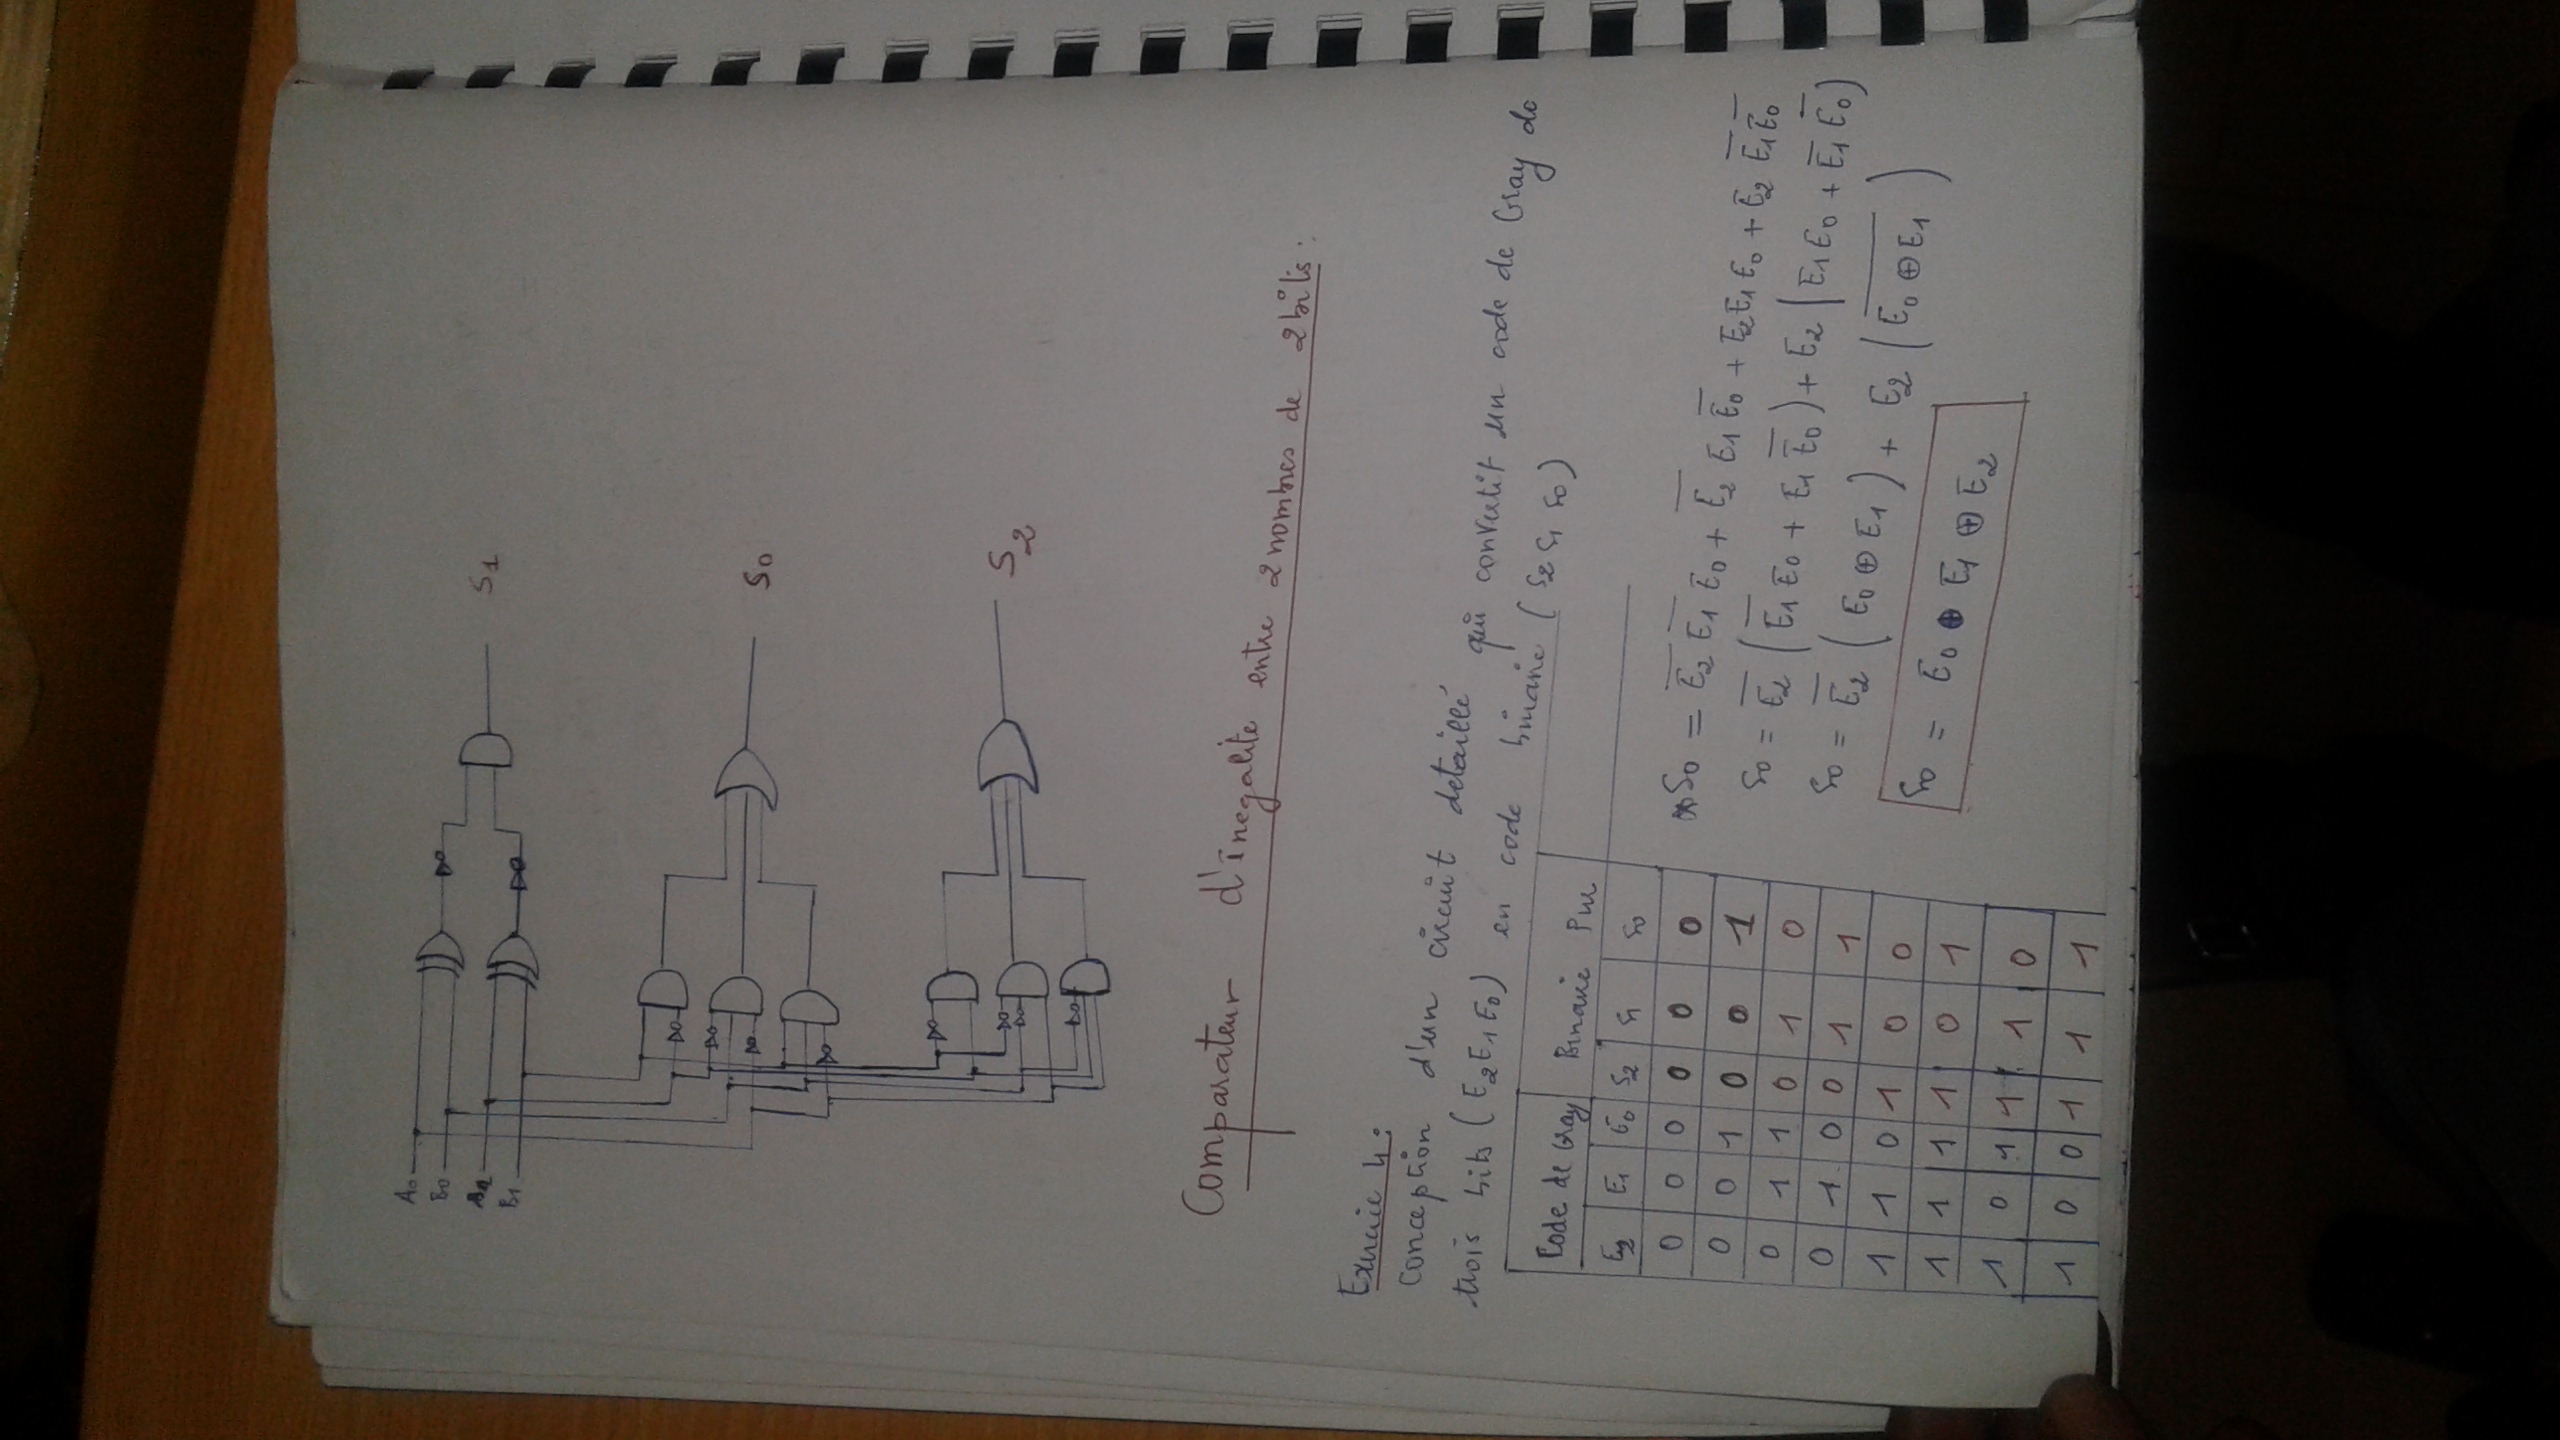 A0
B0
A1
B1
S1
S0
S2
Comparateur d'inegalite entre 2 nombres de 2 bits :
Exercice 4 :
Conception d'un circuit detaillé qui convertit un code de Gray de
trois bits (E2E1E0) en code binaire (S2 S1 S0)
Code de Gray Binaire Pur
E2 E1 E0 S2 S1 S0
0 0 0 0 0 0
0 0 1 0 0 1
0 1 1 0 1 0
0 1 0 0 1 1
1 1 0 1 0 0
1 1 1 1 0 1
1 0 1 1 1 0
1 0 0 1 1 1
* S0 = E̅2 E̅1 E0 + E̅2 E1 E̅0 + E2 E1 E0 + E2 E̅1 E̅0
S0 = E̅2 (E̅1 E0 + E1 E̅0) + E2 (E1 E0 + E̅1 E̅0)
S0 = E̅2 (E0 ⊕ E1) + E2 (E̅0̅ ̅⊕̅ ̅E̅1̅)
S0 = E0 ⊕ E1 ⊕ E2